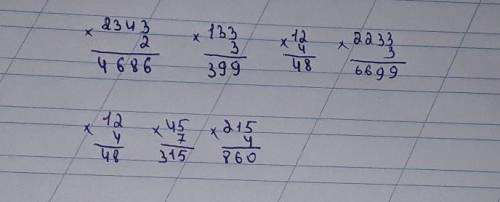 × 2343 × 133 × 12 × 2233
2 3 4 3
4686 399 48 6699
× 12 × 45 × 215
4 7 4
48 315 860